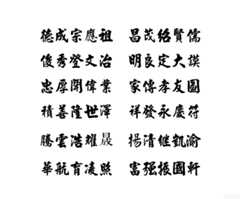 德成宗應祖 昌茂紹賢儒
俊秀登文治 明良定大謨
忠厚開偉業 家傳孝友圖
積善隆世澤 祥發永慶符
騰雲浩耀晟 揚清維凱渝
華航育凌熙 富强振國軒